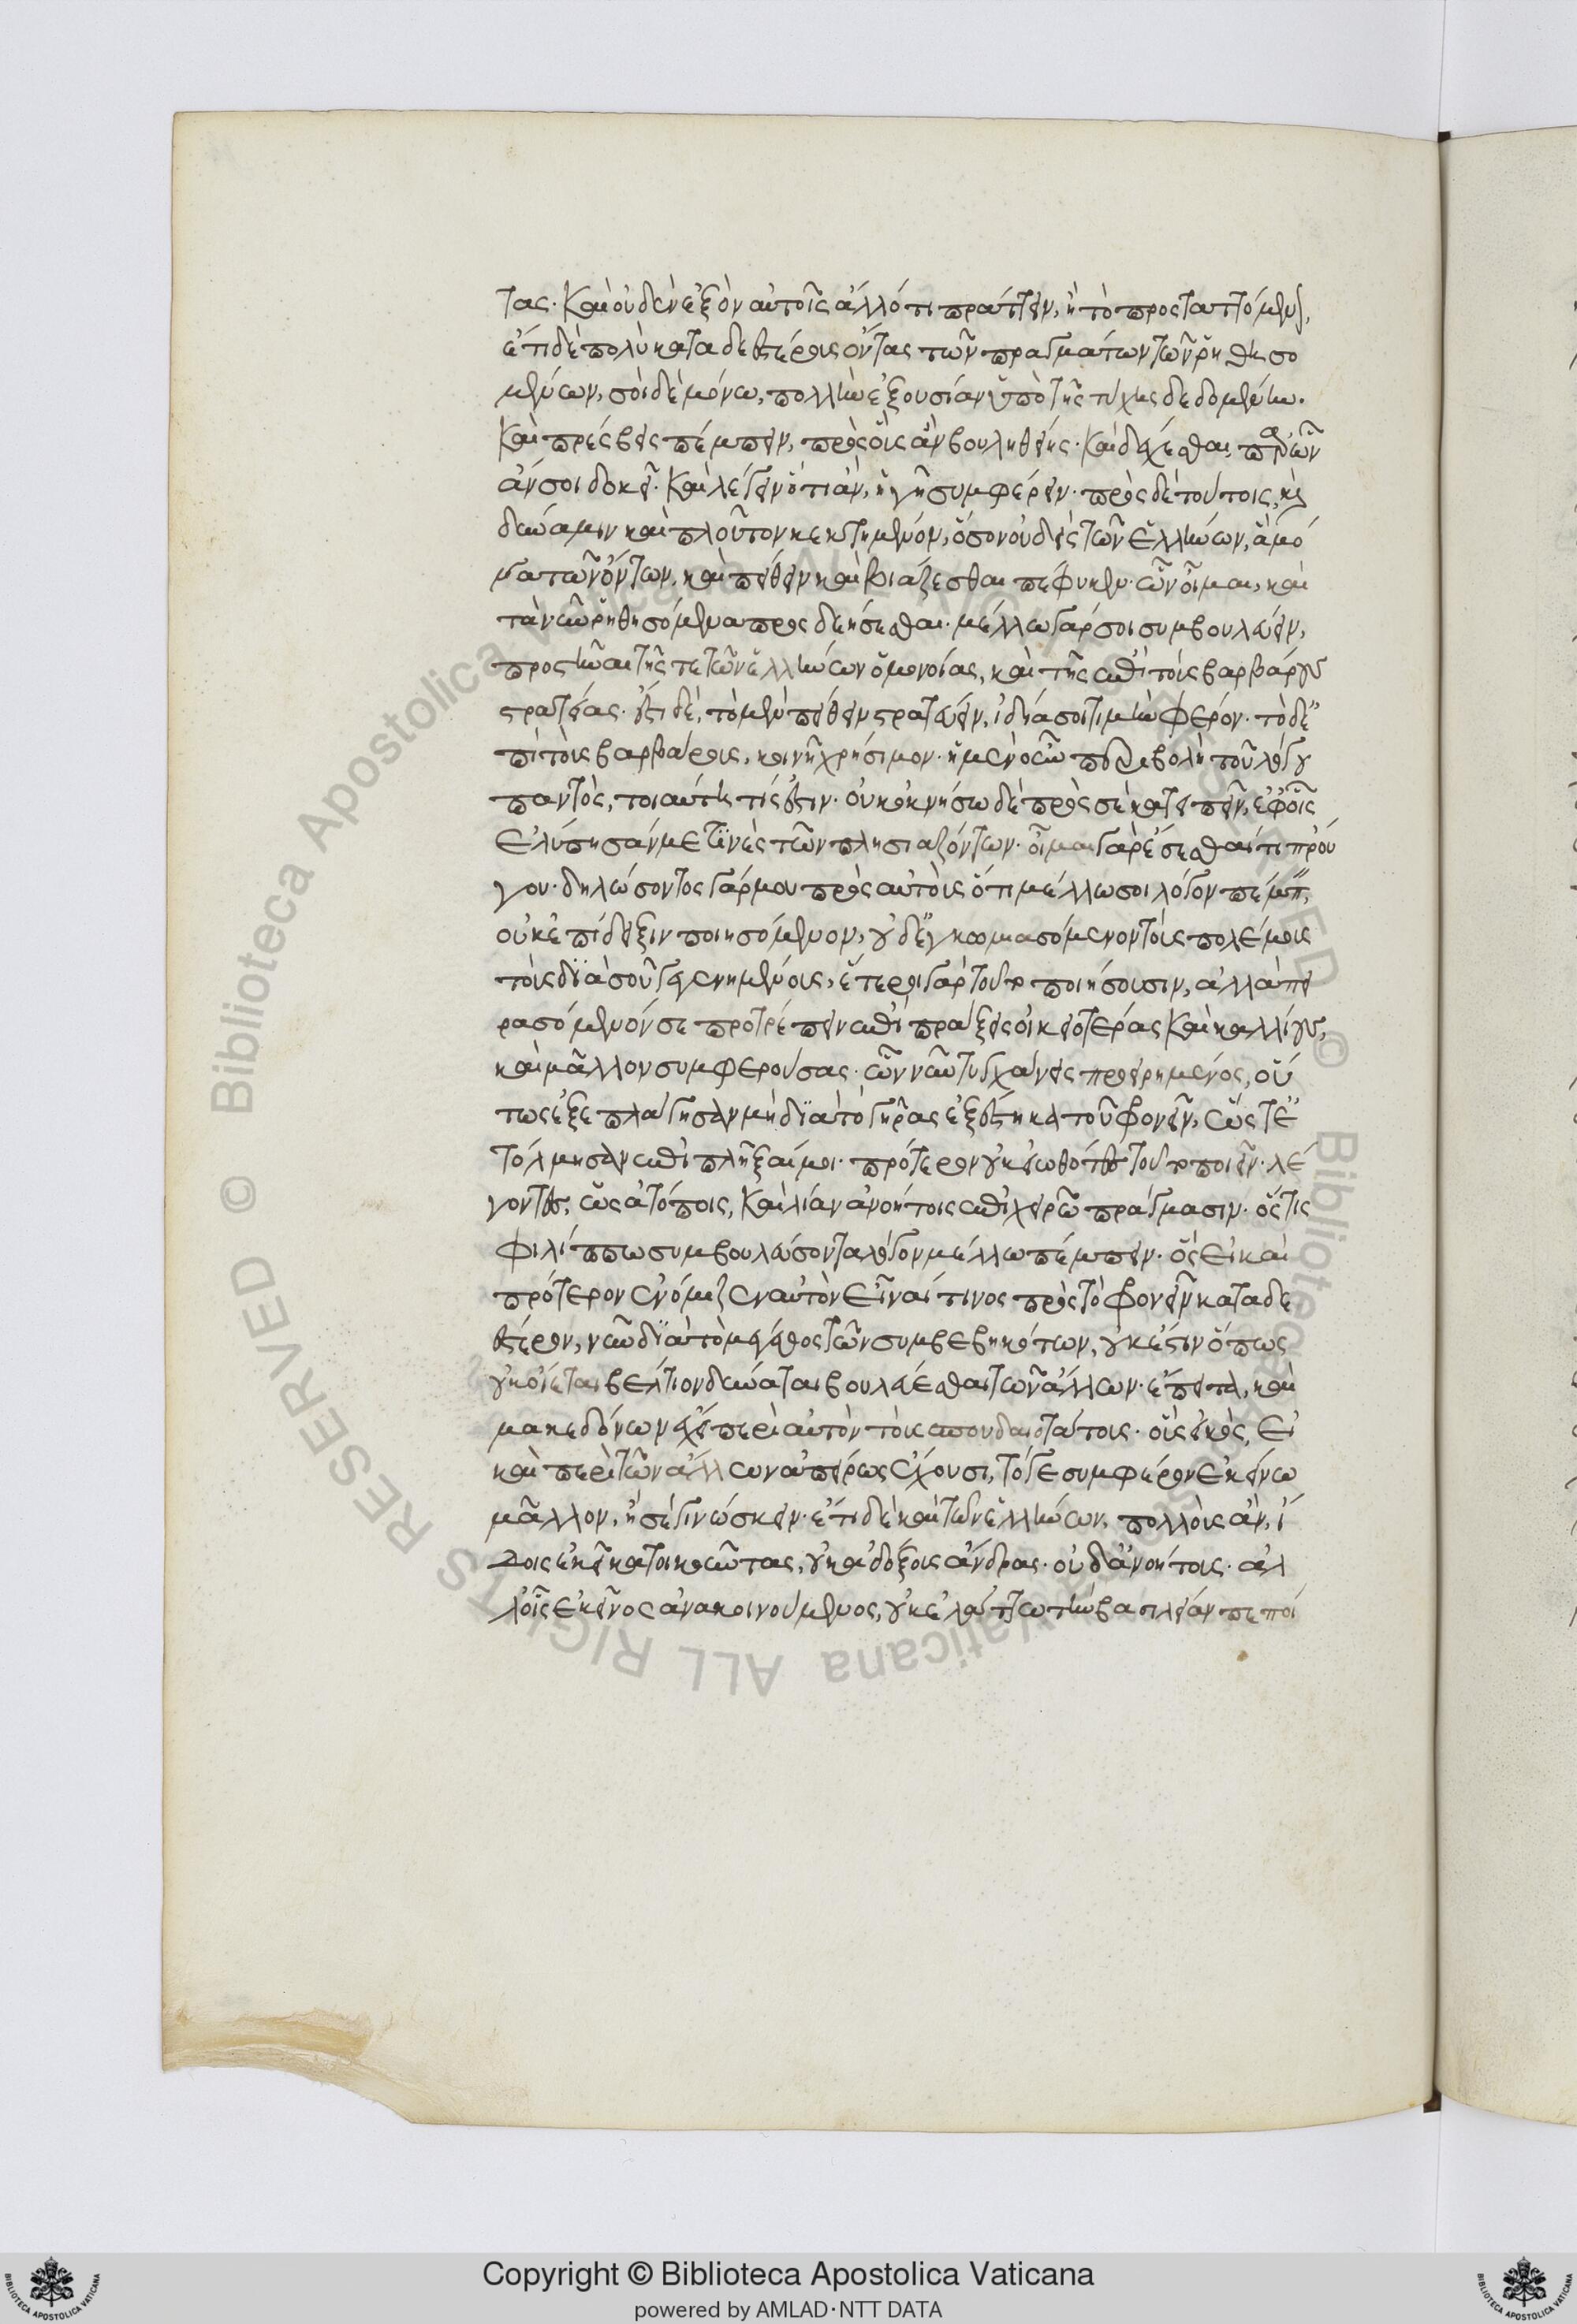 τας· καὶ οὐδὲν ἐξὸν αὐτοῖς ἄλλό τι πράττειν, ἢ τὸ προσταττόμενον,
ἔτι δὲ πολὺ καταδεεστέρους ὄντας τῶν πραγμάτων τῶν ῥηθησο
μένων, σοὶ δὲ μόνω, πολλὴν ἐξουσίαν ὑπὸ τῆς τύχης δεδομένην.
καὶ πρέσβεις πέμπειν, πρὸς οὓς ἂν βουληθείης· καὶ δέχεσθαι παρ' ὧν
ἄν σοι δοκεῖ· καὶ λέγειν ὅτι ἂν, ἡγῆ συμφέρειν· πρὸς δὲ τούτοις, καὶ
δύναμιν καὶ πλοῦτον κεκτημένον, ὅσον οὐδεὶς τῶν ἑλλήνων, ἃ μό
να τῶν ὄντων, καὶ πείθειν καὶ βιάζεσθαι πέφυκεν· ὧν οἶμαι, καὶ
τὰ νῦν ῥηθησόμενα προσδεήσεσθαι· μέλλω γάρ σοι συμβουλεύειν,
προστῆναι τῆς τε τῶν ἑλλήνων ὁμονοίας, καὶ τῆς ἐπὶ τοὺς βαρβάρους
στρατείας· ἔστι δὲ, τὸ μὲν πείθειν στρατεύειν, ἰδία σοι τιμὴν φέρον· τὸ δ' ἐ
πὶ τοὺς βαρβάρους, κοινῆ χρήσιμον· ἡ μὲν οὖν περιβολὴ τοῦ λόγου
παντὸς, τοιαύτη τίς ἐστιν· οὐκ ὀκνήσω δὲ πρὸς σὲ κατειπεῖν, ἐφ' οἷς
ἐλύπησάν με τινὲς τῶν πλησιαζόντων· οἶμαι γὰρ ἔσεσθαί τι πρού
γου· δηλώσοντος γάρ μου πρὸς αὐτοὺς ὅτι μέλλω σοι λόγον πέμπειν,
οὐκ ἐπίδειξιν ποιησόμενον, οὐδ' ἐγκωμιασόμενον τοὺς πολέμους
τοὺς διὰ σοῦ γεγενημένους, ἕτεροι γὰρ τοῦτο ποιήσουσιν, ἀλλὰ πει
ρασόμενόν σε προτρέπειν ἐπὶ πράξεις οἰκειοτέρας καὶ καλλίους,
καὶ μᾶλλον συμφερούσας· ὧν νῦν τυγχάνεις προειρημένος, οὕ
τως ἐξεπλάγησαν μὴ διὰ τὸ γῆρας ἐξέστηκα τοῦ φρονεῖν, ὥστ' ἐ
τόλμησαν ἐπιπλῆξαί μοι· πρότερον οὐκ εἰωθότες τοῦτο ποιεῖν· λέ
γοντες, ὡς ἀτόποις, καὶ λίαν ἀνοήτοις ἐπιχειρῶ πράγμασιν· ὅστις
φιλίππω συμβουλεύσοντα λόγον μέλλω πέμπειν· ὃς εἰ καὶ
πρότερον ἐνόμιζεν αὑτὸν εἶναί τινος πρὸς τὸ φρονεῖν καταδε
έστερον, νῦν διὰ τὸ μέγεθος τῶν συμβεβηκότων, οὐκ ἔστιν ὅπως
οὐκ οἴεται βέλτιον δύναται βουλεύεσθαι τῶν ἄλλων· ἔπειτα, καὶ
μακεδόνων ἔχει περὶ αὑτὸν τοὺς σπουδαιοτάτους· οὓς εἰκὸς, εἰ
καὶ περὶ τῶν ἄλλων ἀπείρως ἔχουσι, τό γε συμφέρον ἐκείνω
μᾶλλον, ἢ σὲ γινώσκειν· ἔτι δὲ καὶ τῶν ἑλλήνων, πολλοὺς ἂν, ἴ
δοις ἐκεῖ κατοικοῦντας, οὐκ ἀδόξους ἄνδρας· οὐδ' ἀνοήτους· ἀλ
λ' οἷς ἐκεῖνος ἀνακοινούμενος, οὐκ ἐλάττω τὴν βασιλείαν πεποί
Copyright © Biblioteca Apostolica Vaticana
powered by AMLAD·NTT DATA